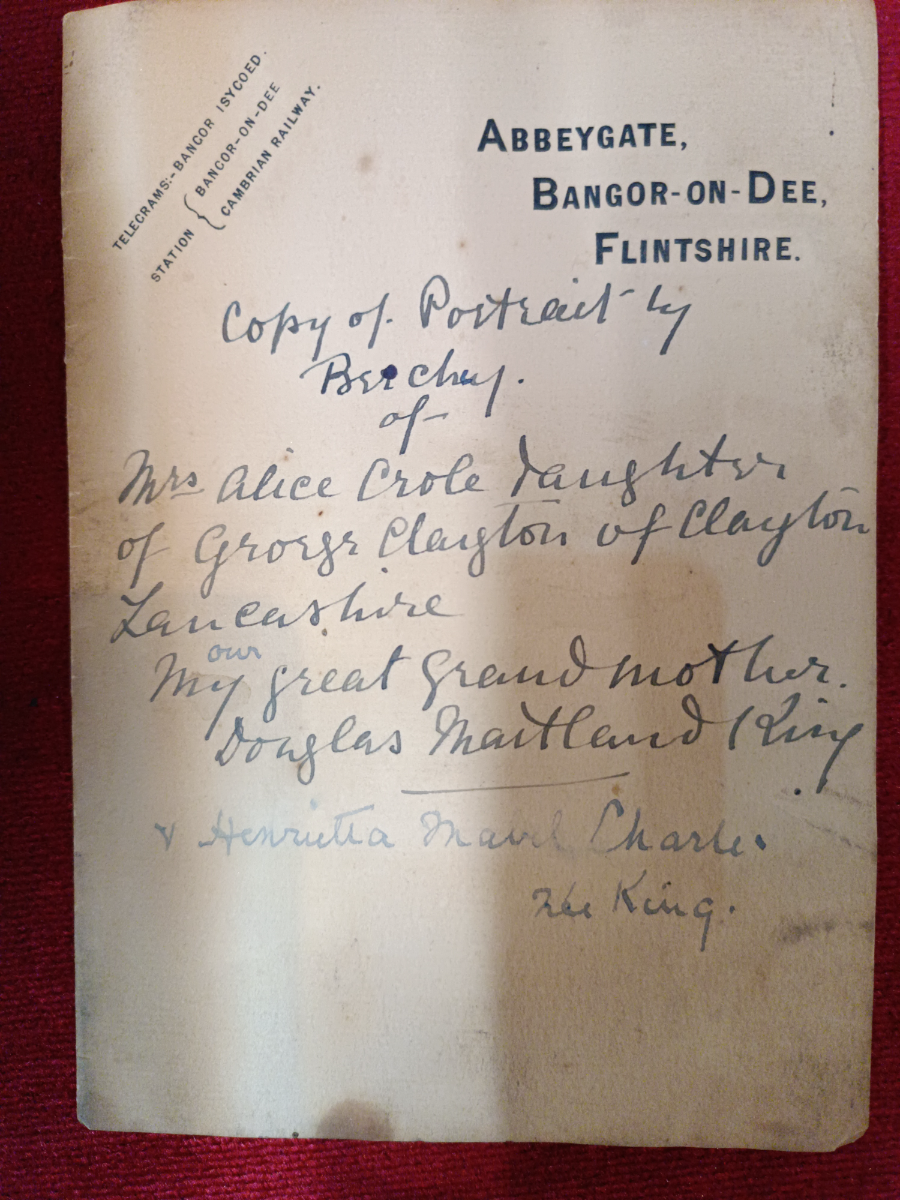 TELEGRAMS:- BANGOR ISYCOED.
STATION { BANGOR-ON-DEE
CAMBRIAN RAILWAY.
ABBEYGATE,
BANGOR-ON-DEE,
FLINTSHIRE.
Copy of Portrait by
Beechey.
of
Mrs Alice Crole daughter
of George Clayton of Clayton
Lancashire
our
My great Grandmother.
Douglas Maitland King
& Henrietta Mavel Charles
née King.